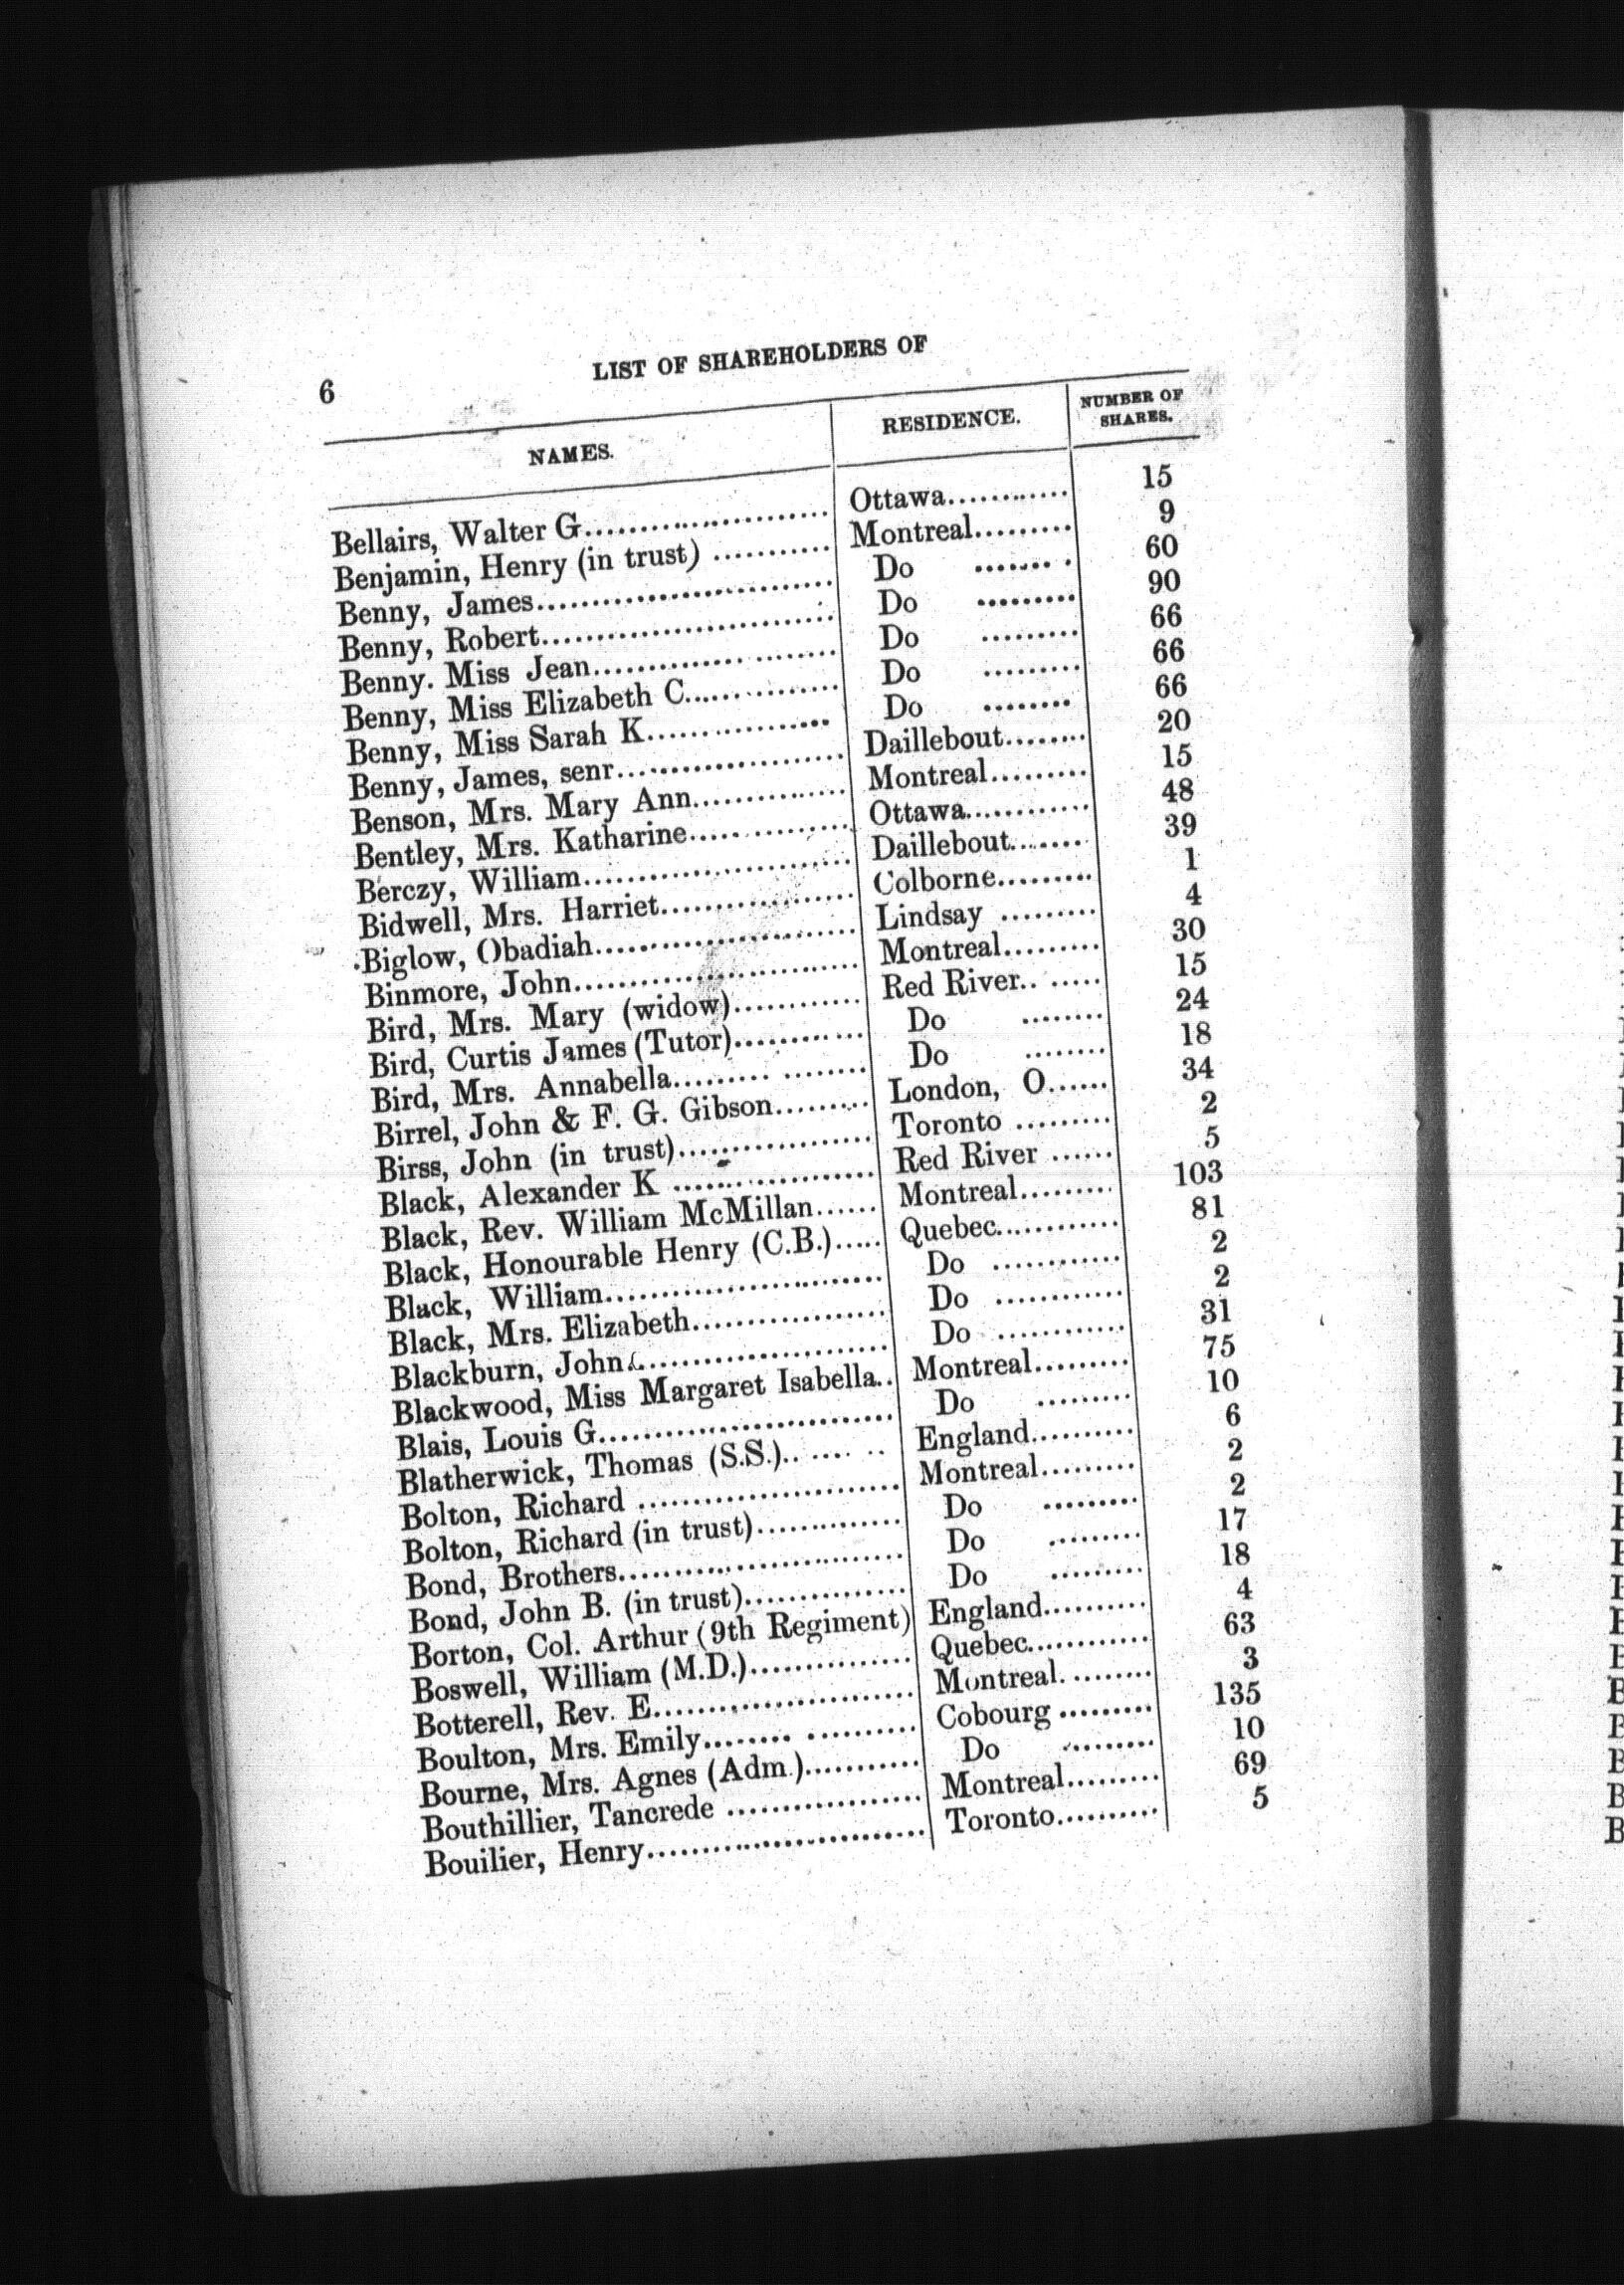 6
LIST OF SHAREHOLDERS OF
NAMES. RESIDENCE. NUMBER OF SHARES.
Bellairs, Walter G........................ Ottawa............ 15
Benjamin, Henry (in trust) ........... Montreal......... 9
Benny, James........................... Do ......... 60
Benny, Robert........................... Do ......... 90
Benny. Miss Jean........................ Do ......... 66
Benny, Miss Elizabeth C............... Do ......... 66
Benny, Miss Sarah K.................. Do ........ 66
Benny, James, senr..................... Daillebout........ 20
Benson, Mrs. Mary Ann............... Montreal......... 15
Bentley, Mrs. Katharine............... Ottawa............ 48
Berczy, William......................... Daillebout........ 39
Bidwell, Mrs. Harriet.................. Colborne......... 1
Biglow, Obadiah........................ Lindsay ......... 4
Binmore, John........................... Montreal......... 30
Bird, Mrs. Mary (widow)............ Red River........ 15
Bird, Curtis James (Tutor)............ Do ........ 24
Bird, Mrs. Annabella.................. Do ........ 18
Birrel, John & F. G. Gibson......... London, O...... 34
Birss, John (in trust).................. Toronto ......... 2
Black, Alexander K .................. Red River ...... 5
Black, Rev. William McMillan...... Montreal......... 103
Black, Honourable Henry (C.B.)..... Quebec............ 81
Black, William......................... Do ............ 2
Black, Mrs. Elizabeth.................. Do ............ 2
Blackburn, John........................ Do ............ 31
Blackwood, Miss Margaret Isabella.. Montreal......... 75
Blais, Louis G........................... Do ......... 10
Blatherwick, Thomas (S.S.)......... England.......... 6
Bolton, Richard ........................ Montreal......... 2
Bolton, Richard (in trust)............. Do ......... 2
Bond, Brothers.......................... Do ......... 17
Bond, John B. (in trust)............... Do ......... 18
Borton, Col. Arthur (9th Regiment) England.......... 4
Boswell, William (M.D.)............... Quebec............ 63
Botterell, Rev. E........................ Montreal.......... 3
Boulton, Mrs. Emily.................. Cobourg ......... 135
Bourne, Mrs. Agnes (Adm.)........... Do ......... 10
Bouthillier, Tancrede .................. Montreal......... 69
Bouilier, Henry......................... Toronto.......... 5